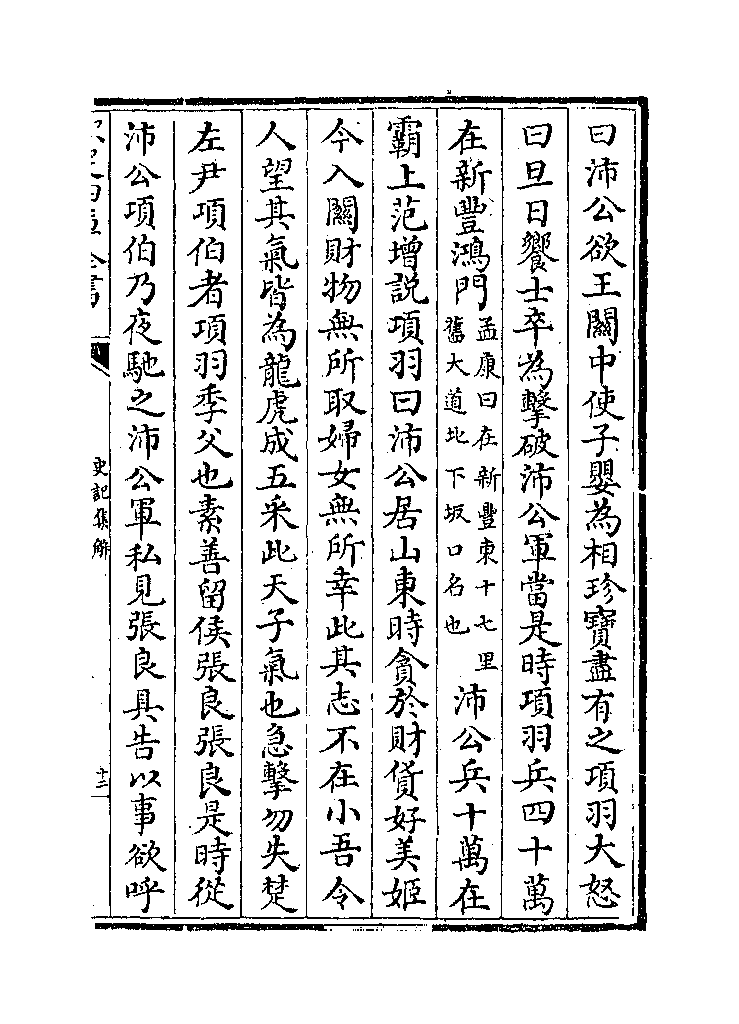 曰沛公欲王關中使子嬰為相珍寶盡有之項羽大怒
曰旦日饗士卒為擊破沛公軍當是時項羽兵四十萬
在新豐鴻門孟康曰在新豐東十七里舊大道北下坂口名也沛公兵十萬在
霸上范增說項羽曰沛公居山東時貪於財貨好美姬
今入關財物無所取婦女無所幸此其志不在小吾令
人望其氣皆為龍虎成五采此天子氣也急擊勿失楚
左尹項伯者項羽季父也素善留侯張良張良是時從
沛公項伯乃夜馳之沛公軍私見張良具告以事欲呼
史記集解
十三